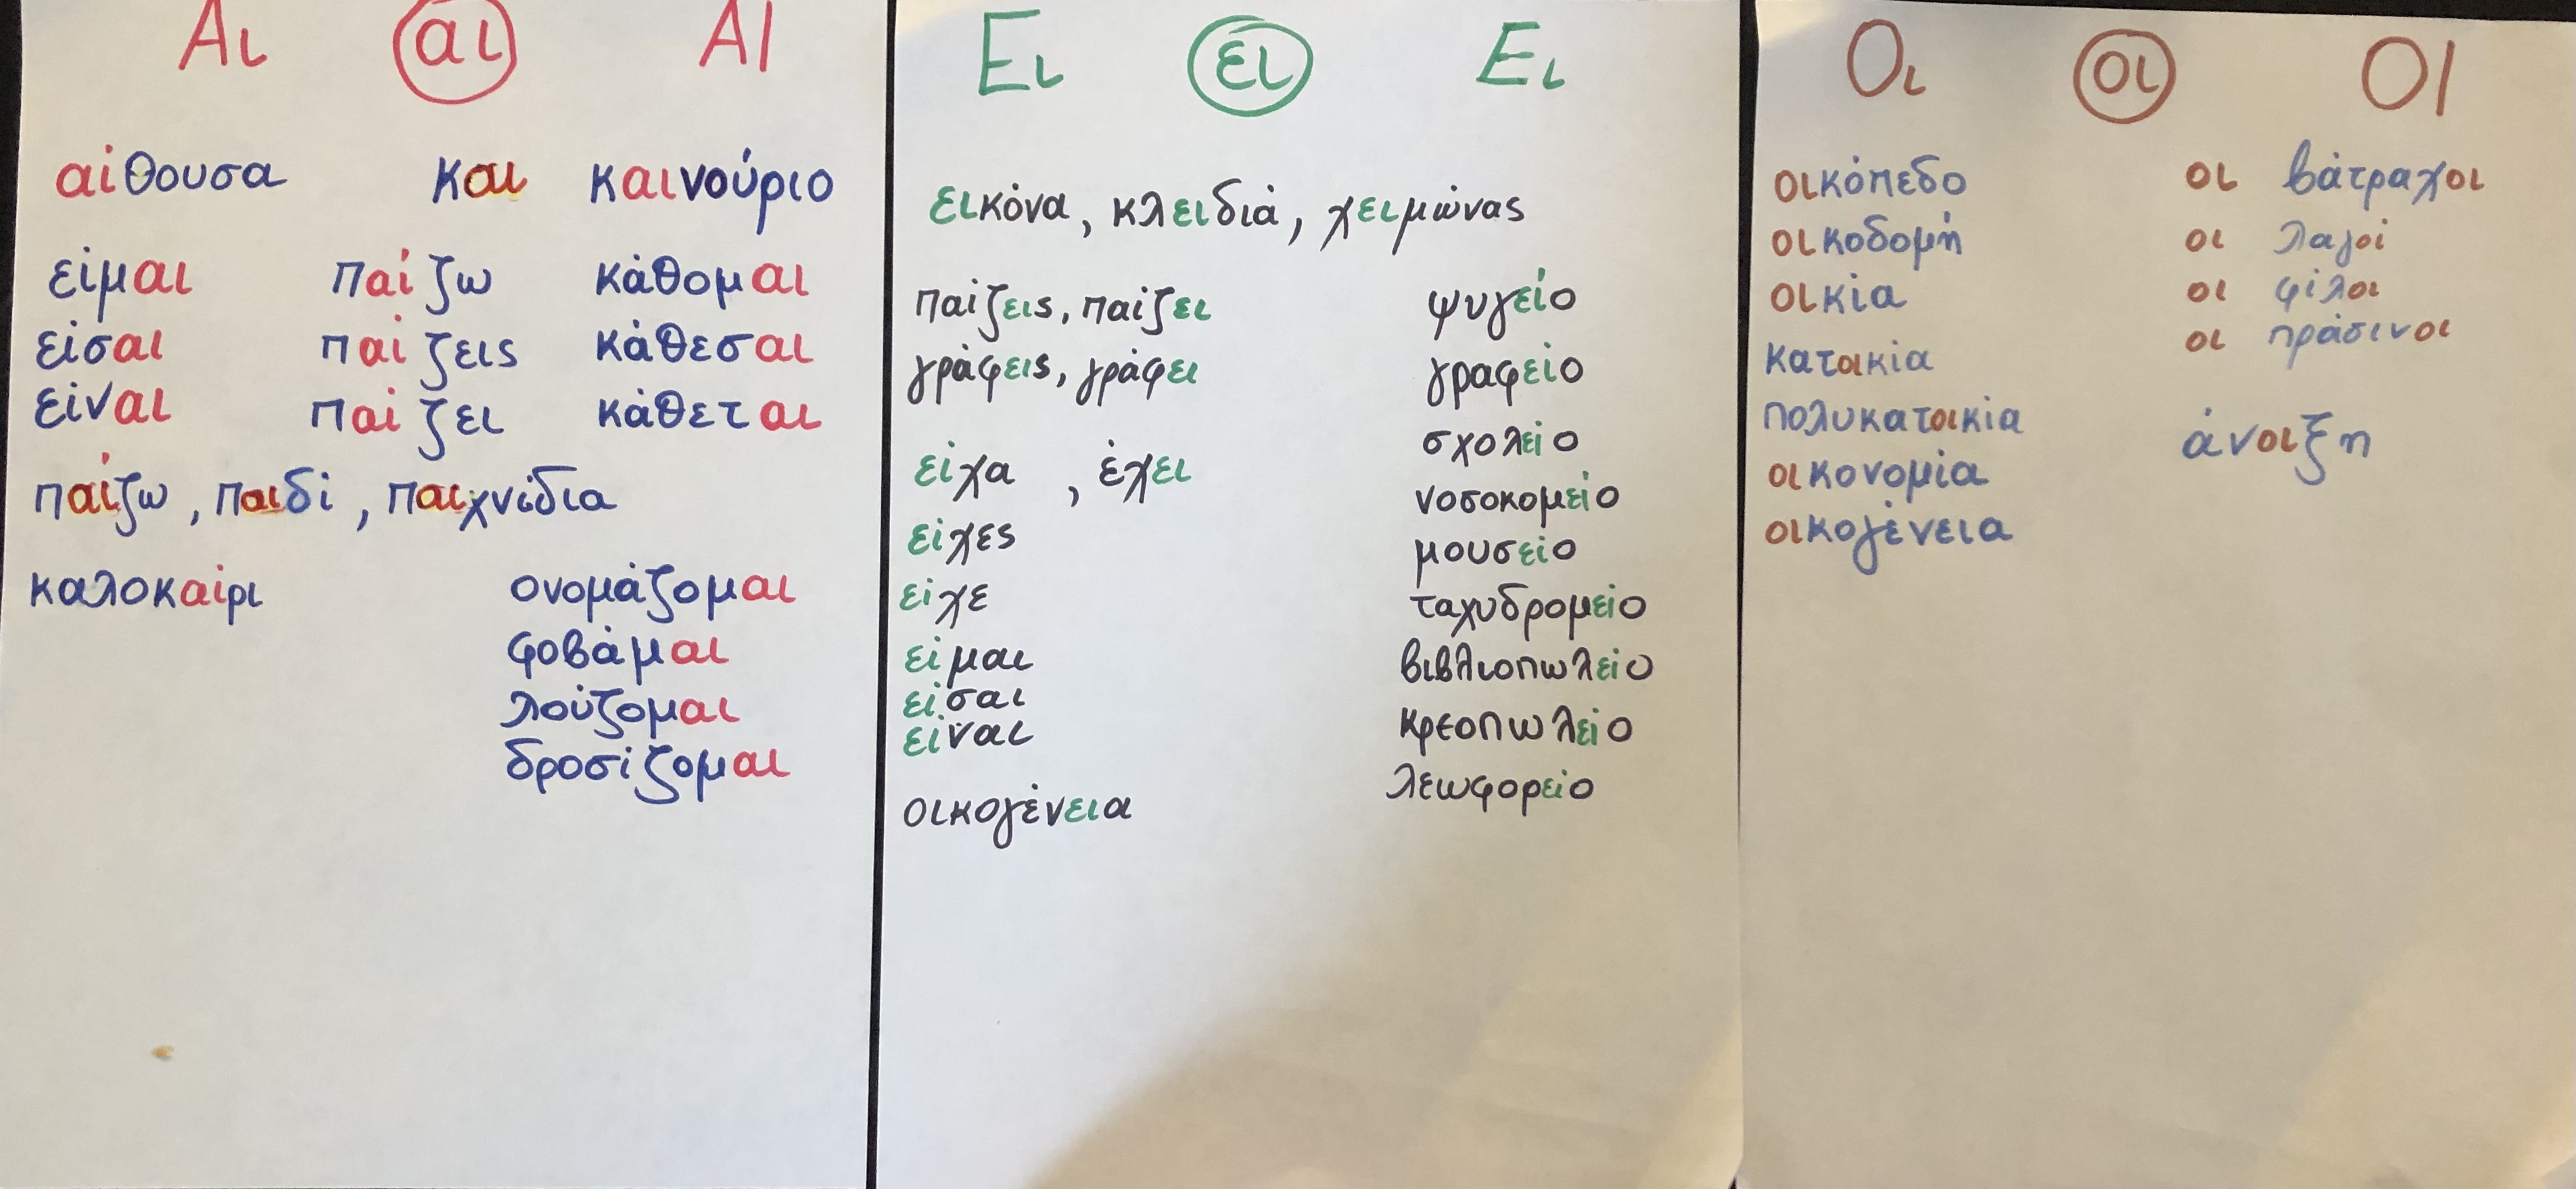 Αι αι ΑΙ
αίθουσα και καινούριο
είμαι παίζω κάθομαι
είσαι παίζεις κάθεσαι
είναι παίζει κάθεται
παίζω, παιδί, παιχνίδια
καλοκαίρι ονομάζομαι
φοβάμαι
λούζομαι
δροσίζομαι
Ει ει Ει
εικόνα, κλειδιά, χειμώνας
παίζεις, παίζει ψυγείο
γράφεις, γράφει γραφείο
σχολείο
είχα, έχει νοσοκομείο
είχες μουσείο
είχε ταχυδρομείο
είμαι βιβλιοπωλείο
είσαι
είναι κρεοπωλείο
λεωφορείο
οικογένεια
Οι οι ΟΙ
οικόπεδο οι βάτραχοι
οικοδομή οι λαγοί
οικία οι φίλοι
κατοικία οι πράσινοι
πολυκατοικία άνοιξη
οικονομία
οικογένεια